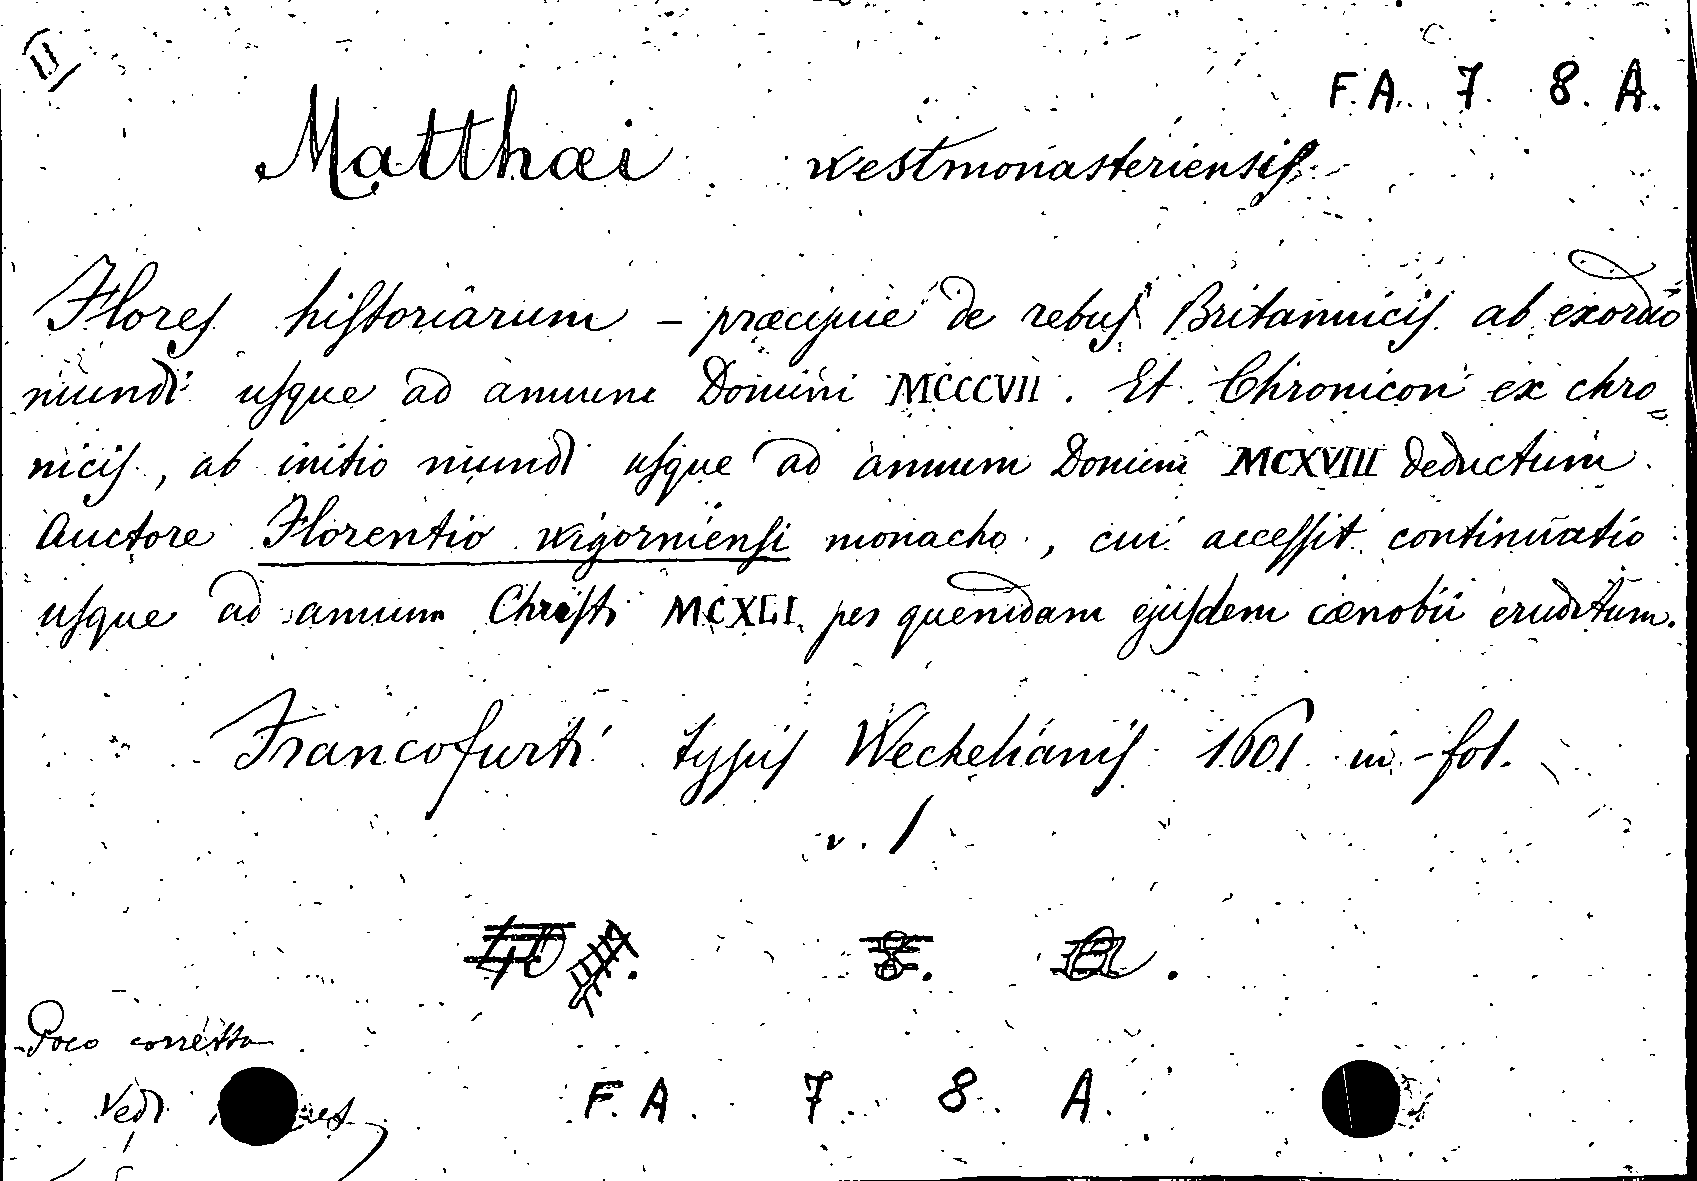 II
F. A. 7. 8. A.
Matthæi westmonasteriensis
Flores historiarum – præcipuè de rebus Britannicis ab exordio
mundi usque ad annum Domini MCCCVII. Et Chronicon ex chro=
nicis, ab initio mundi usque ad annum Domini MCXVIII deductum.
Auctore Florentio wigorniensi monacho, cui accessit continuatio
usque ad annum Christi MCXLI, per quemdam ejusdem cœnobii eruditum.
Francofurti typis Weckelianis 1601 in-fol.
v. 1
8. A.
Poco corretta
Vedi
F. A. 7. 8. A.